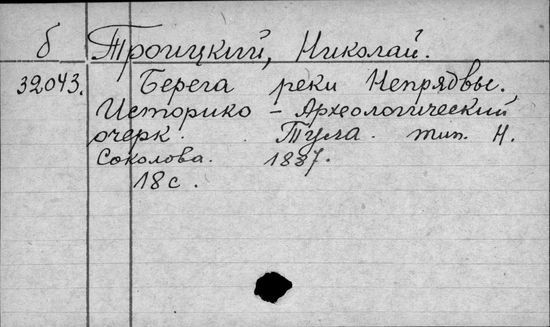 б Троицкий, Николай.
32043. Берега реки Непрядвы.
Историко - Археологический
очерк. Тула. тип. Н.
Соколова. 1887.
18 с.